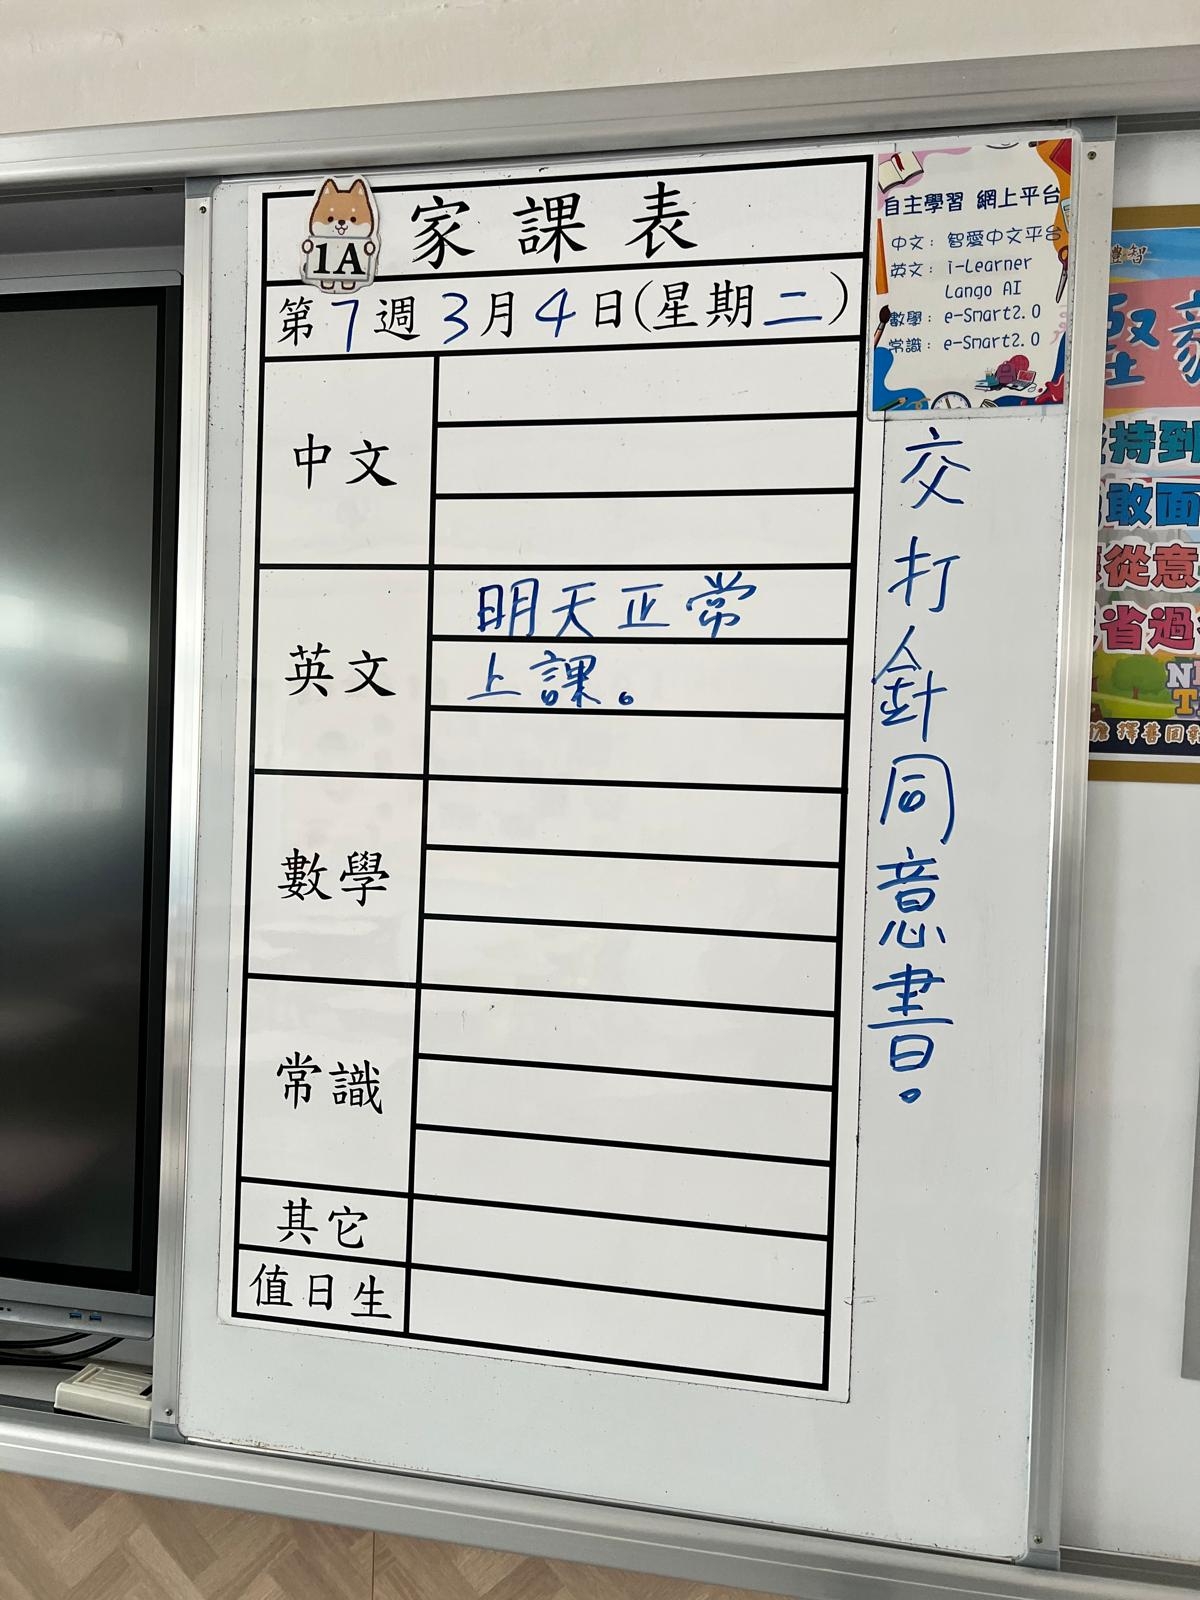 1A
家課表
第7週3月4日(星期二)
中文
英文
明天正常
上課。
數學
常識
其它
值日生
自主學習 網上平台
中文：智愛中文平台
英文：i-Learner
Lango AI
數學：e-Smart2.0
常識：e-Smart2.0
交打針同意書。
禮智
堅毅
持到
敢面
從意
省過
擇善固